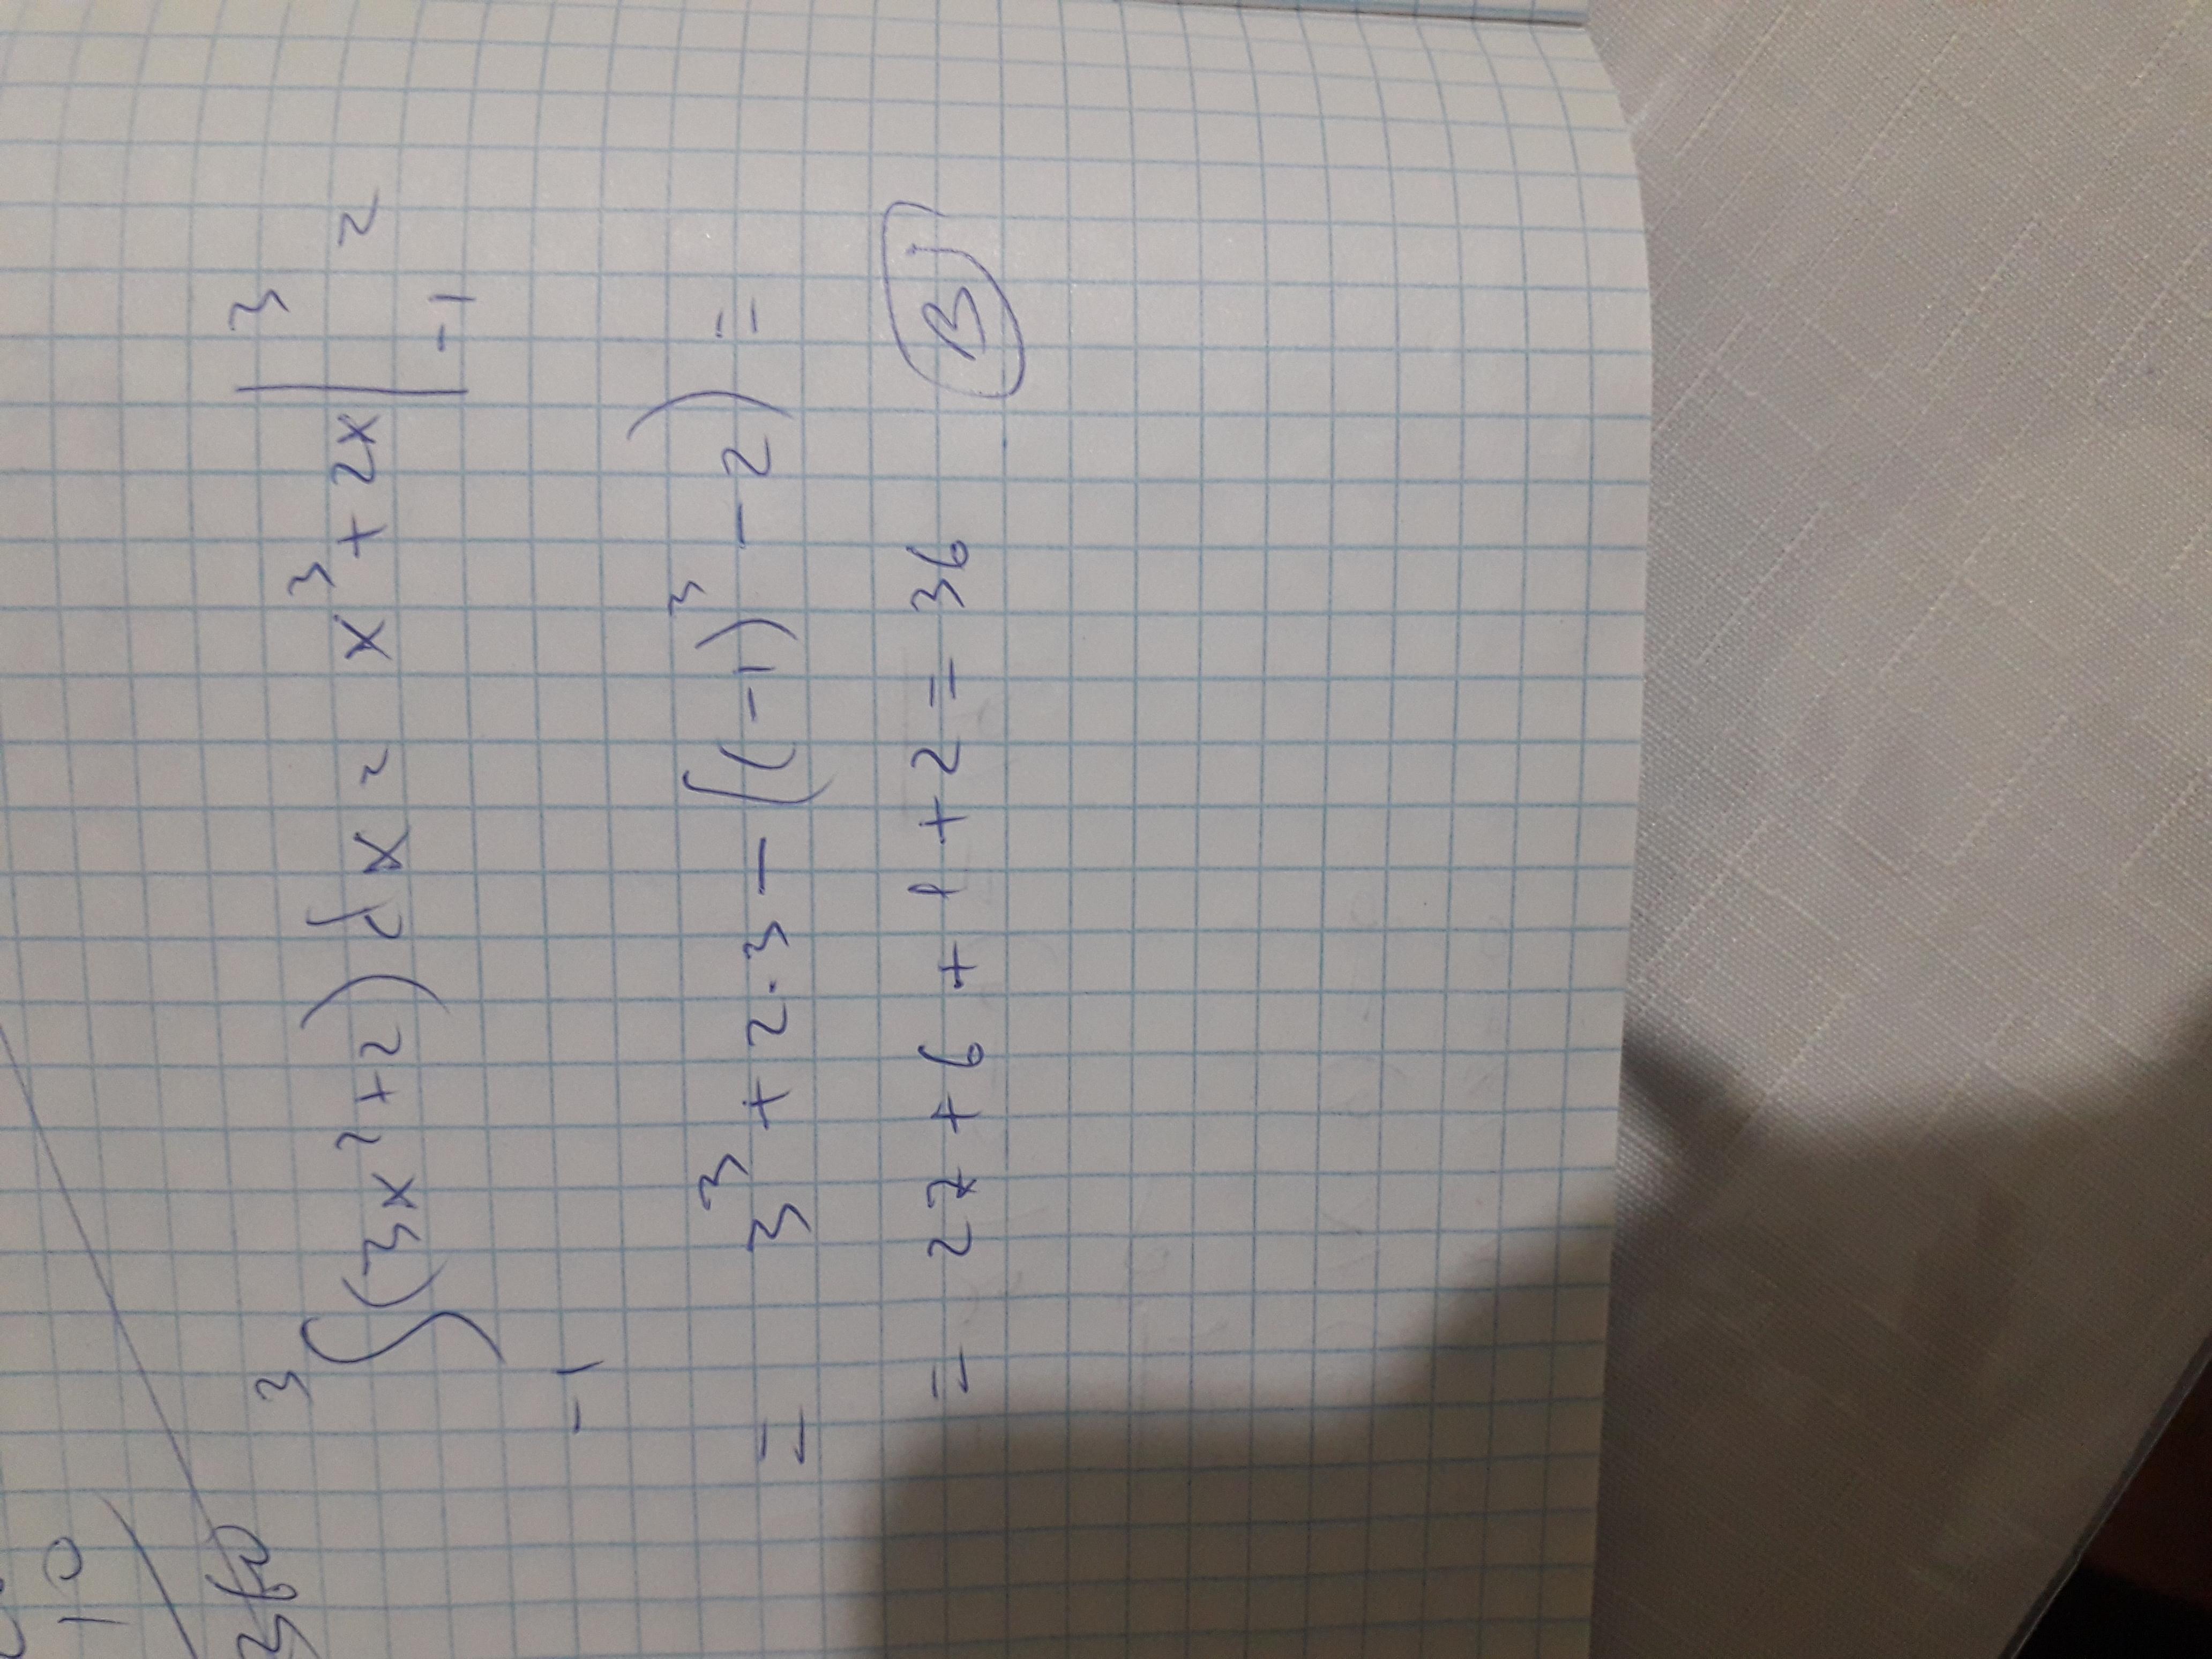 10
3
∫(3x²+2)dx = x³+2x|³₋₁ =
-1
= 3³+2·3-((-1)³-2) =
= 27+6+1+2=36 B)